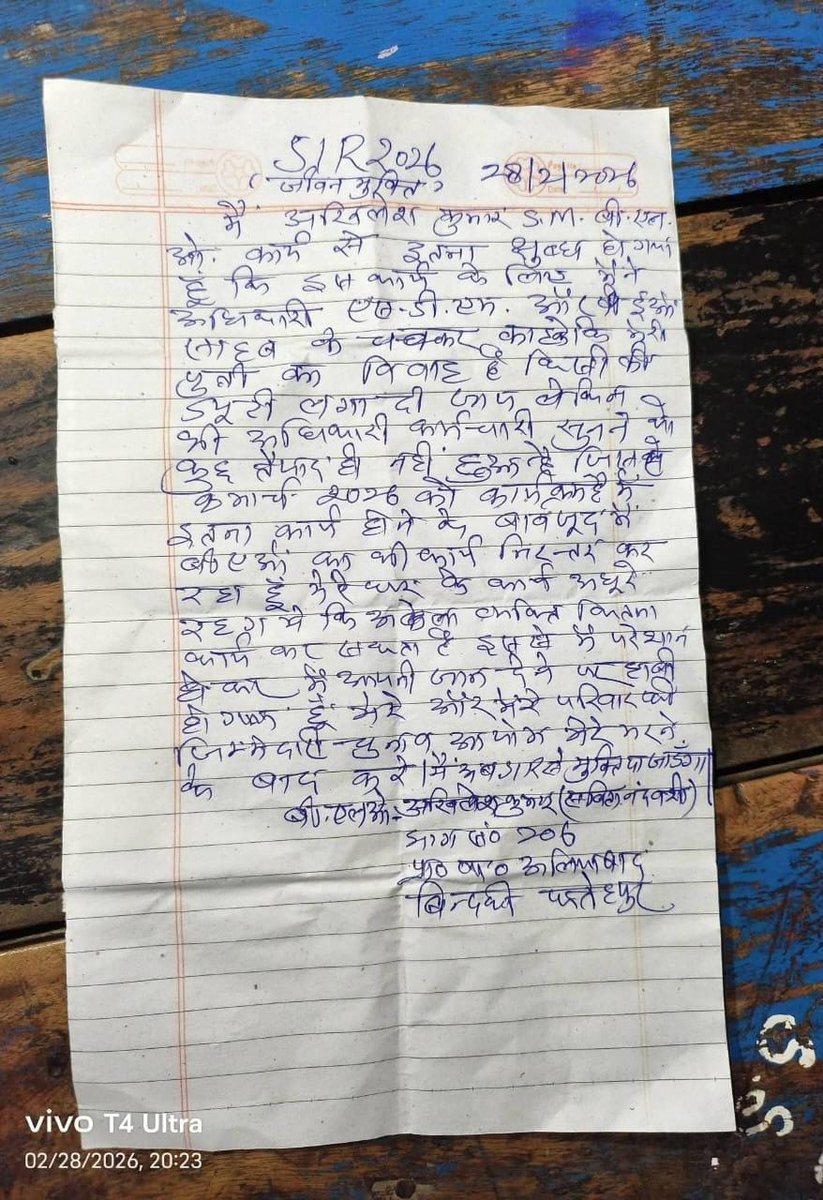 SIR 2026
(जीवन मुक्ति) 28/2/2026
मैं अखिलेश कुमार S.M. बी.एल.
ओ. कार्य से इतना क्षुब्ध हो गया
हूं कि इस कार्य के लिए मैंने
अधिकारी एस.डी.एम. और ईओ
साहब के चक्कर काटे कि मेरी
पुत्री का विवाह है किसी की
ड्यूटी लगा दी जाय लेकिन
भी अधिकारी कर्मचारी सुनने को
कुछ तैयार ही नहीं हुआ है
मार्च 2026 को कार्यक्रम है मैं
इतना कार्य होने के बावजूद मैं
बीएलओ का भी कार्य निरन्तर कर
रहा हूँ मेरे घर के कार्य अधूरे
रह गये कि अकेला व्यक्ति कितना
कार्य कर सकता है इससे मैं परेशान
होकर मैं अपनी जान देने पर हावी
हो गया हूँ मेरे और मेरे परिवार की
जिम्मेदारी चुनाव आयोग मेरे मरने
के बाद करे। मैं अब SIR से मुक्ति पा जाऊँगा॥
बी.एलओ. अखिलेश कुमार
भाग सं० 206
प्रा० पा० अलियाबाद
बिन्दकी फतेहपुर
vivo T4 Ultra
02/28/2026, 20:23